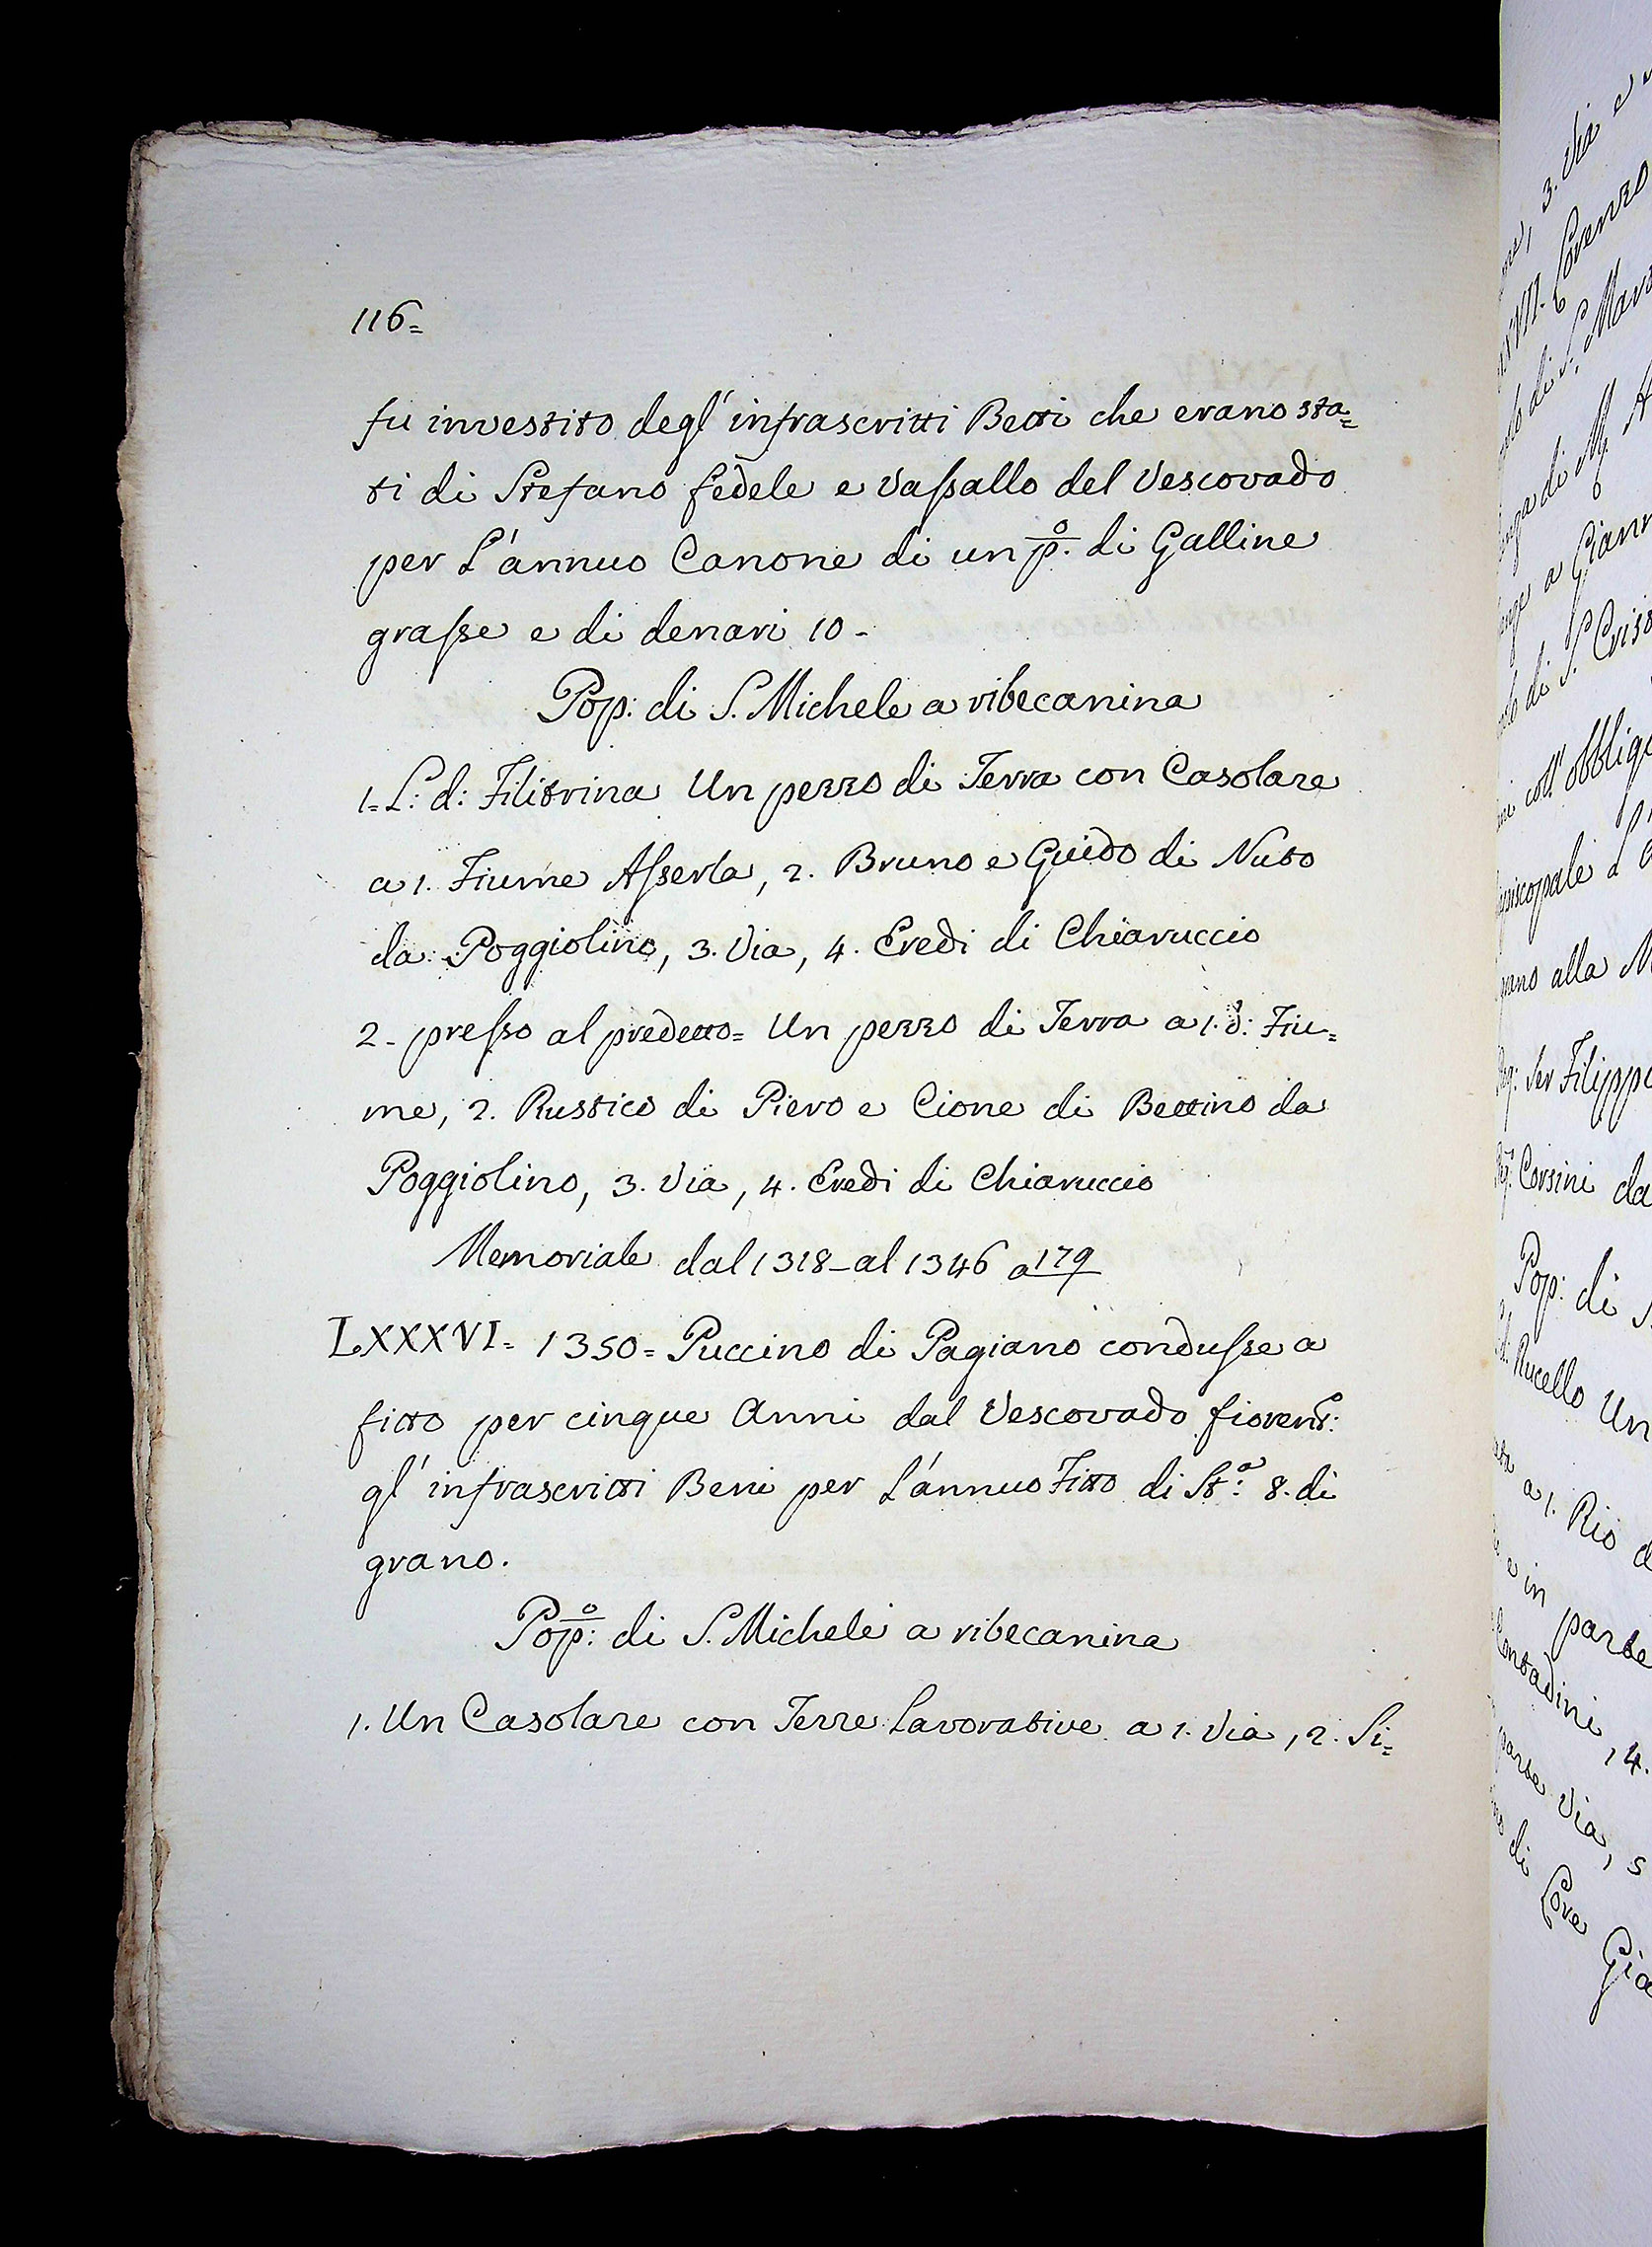 116=
fu investito degl'infrascritti Betti che erano sta=
ti di Stefano fedele e Vassallo del Vescovado
per L'annuo Canone di un pº. di Galline
grasse e di denari 10-
Pop: di S. Michele a ribecanina
1=L: d: Filitrina Un pezzo di Terra con Casolare
a 1. Fiume Asserta, 2. Bruno e Guido di Nuto
da Poggiolino, 3. Via, 4. Eredi di Chiaruccio
2- presso al predetto= Un pezzo di Terra a 1. dº: Fiu=
me, 2. Russico di Piero e Cione di Bettino da
Poggiolino, 3. Via, 4. Eredi di Chiaruccio
Memoriale dal 1318-al 1346 a 179
LXXXVI= 1350= Puccino di Pagiano condusse a
fitto per cinque Anni dal Vescovado fiorent:
gl'infrascritti Beni per L'annuo Fitto di Stª: 8. di
grano.
Popº: di S. Michele a ribecanina
1. Un Casolare con Terre Lavorative a 1. Via, 2. Si=
3. Via
Lorenzo
di S. Mar
di M.
a Giann
di S. Cris
coll' obblig
alla M
Ser Filippo
Corsini da
Pop: di S.
Rucello Un
a 1. Rio d
e in parte
Contadini, 4.
Via, 5
di Lore
Gia